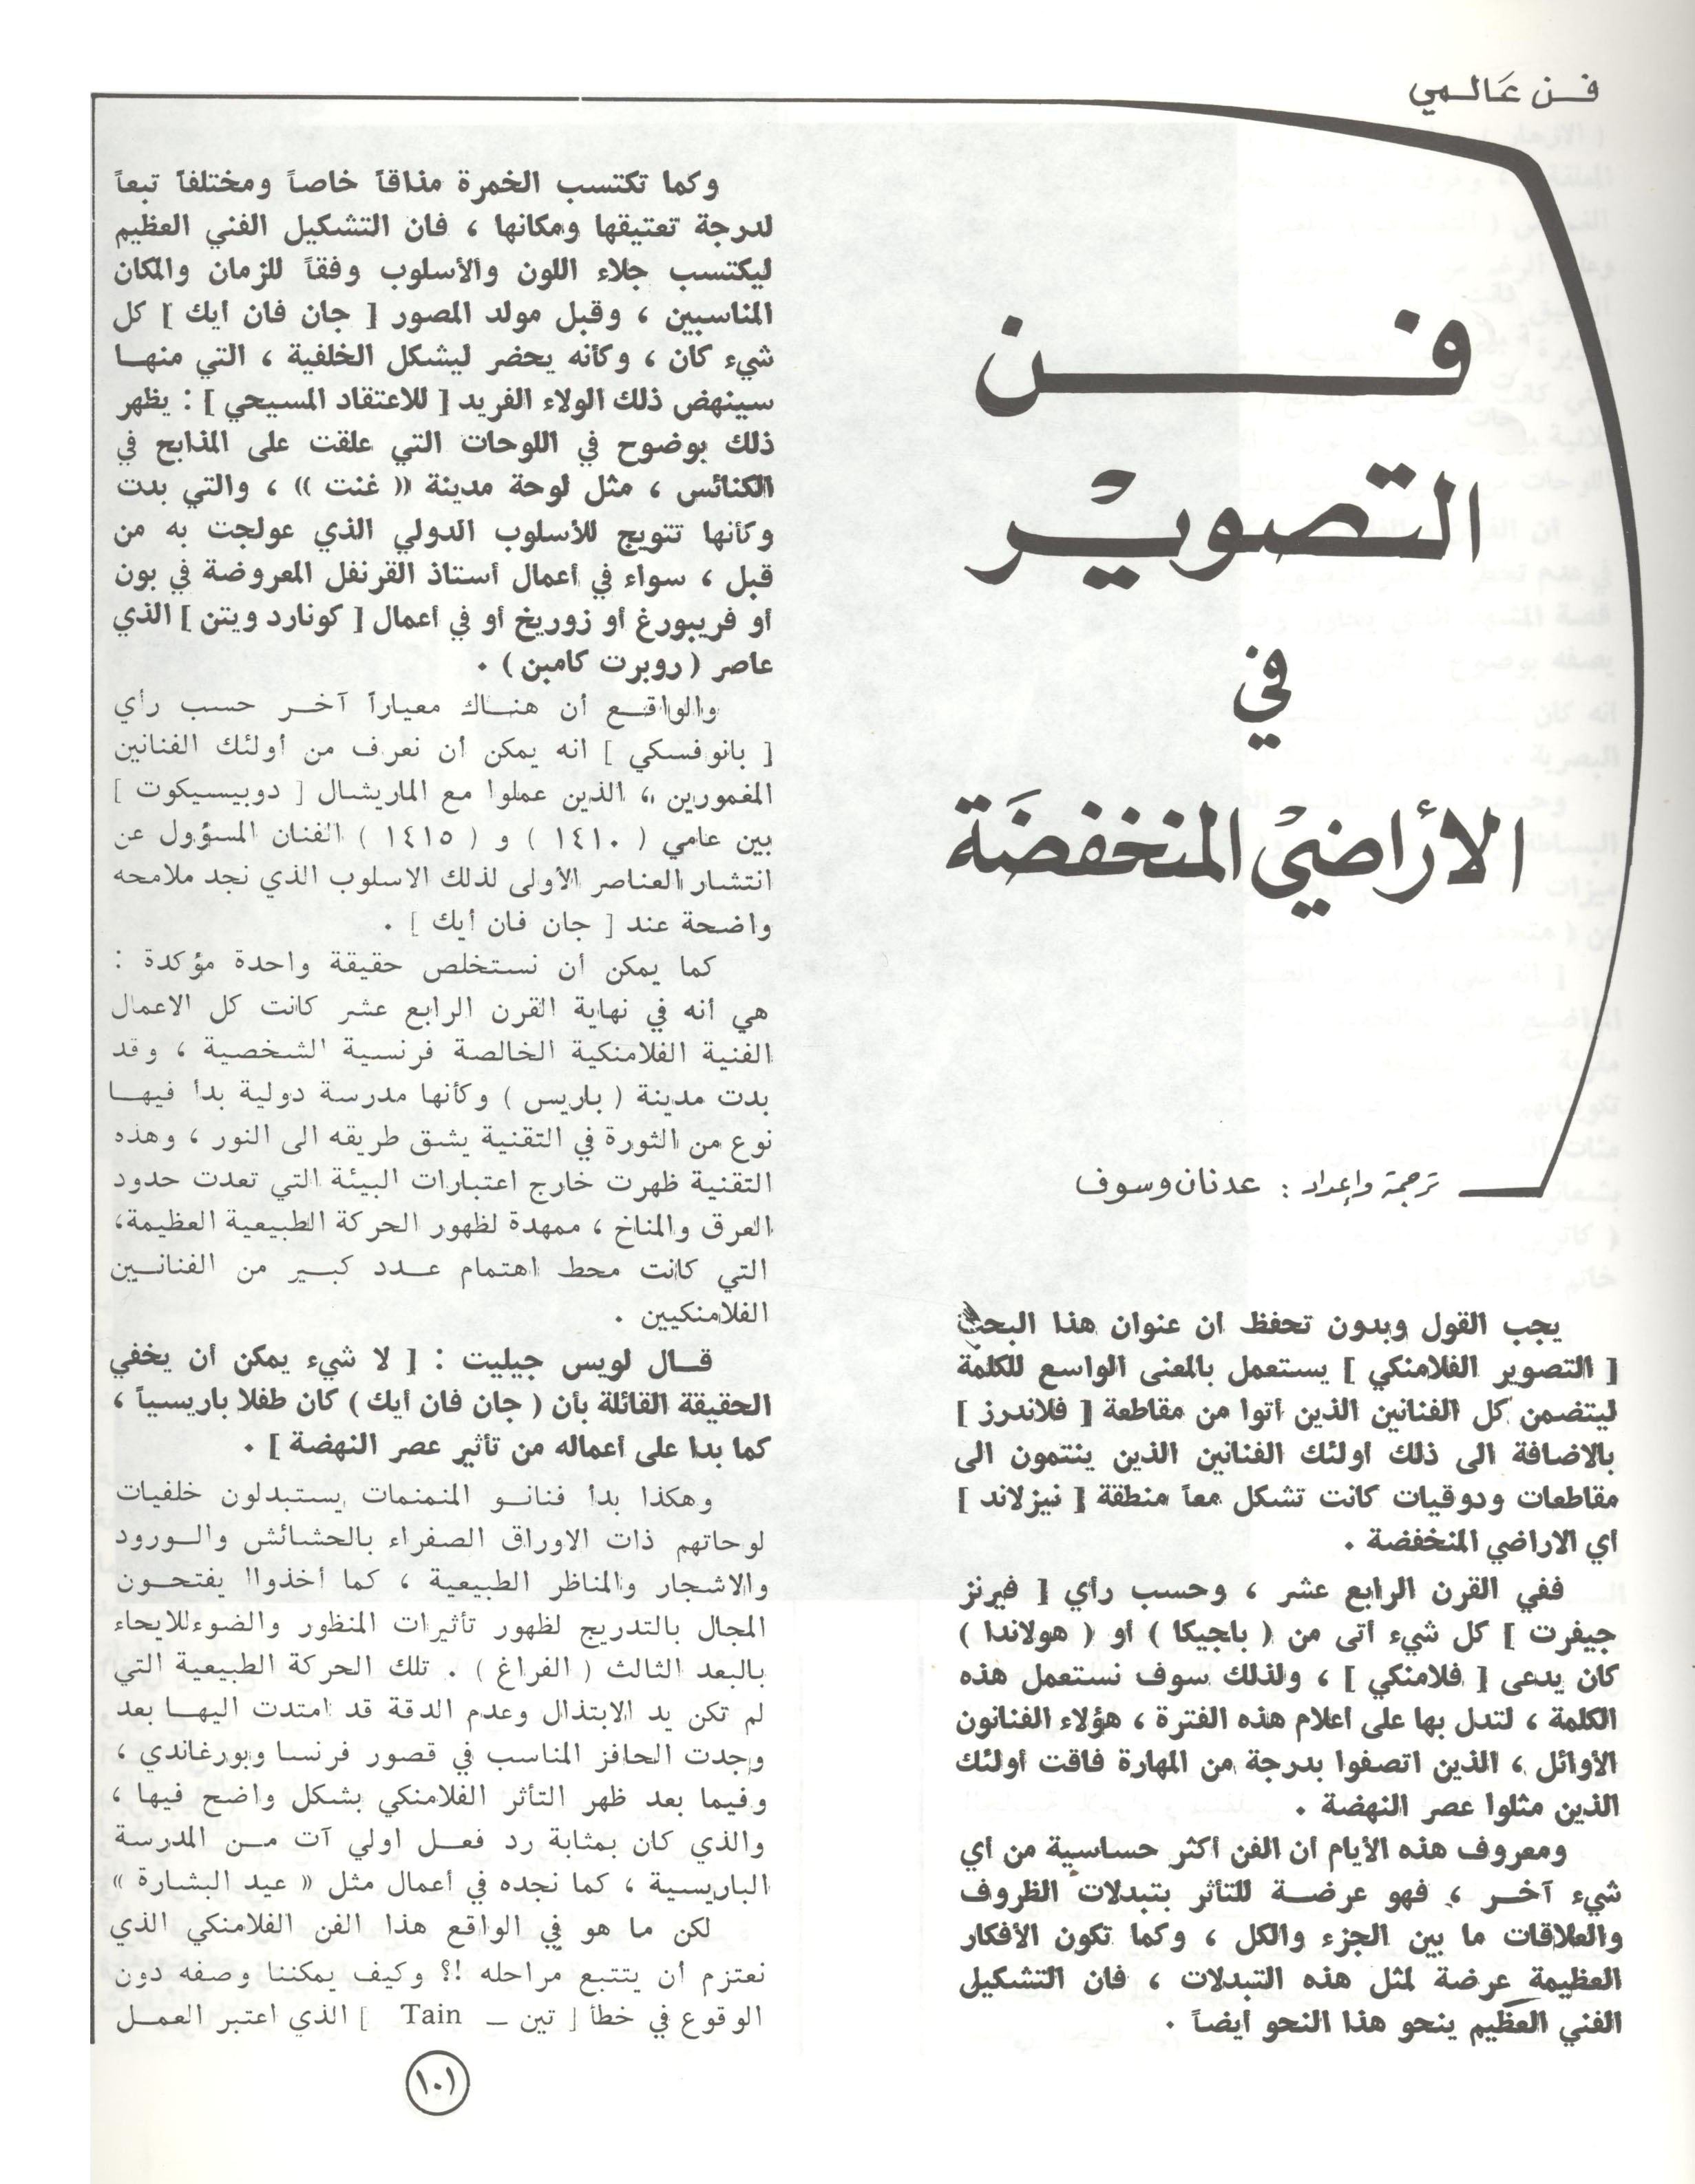 فن عَالمي
فن
التصويْر
في
الأراضيْ المنخفضَة
ترجمة وإعداد : عدنان وسوف
يجب القول وبدون تحفظ ان عنوان هذا البحث
[ التصوير الفلامنكي ] يستعمل بالمعنى الواسع للكلمة
ليتضمن كل الفنانين الذين أتوا من مقاطعة [ فلاندرز ]
بالاضافة الى ذلك اولئك الفنانين الذين ينتمون الى
مقاطعات ودوقيات كانت تشكل معاً منطقة [ نيزلاند ]
أي الاراضي المنخفضة .
ففي القرن الرابع عشر ، وحسب رأي [ فيرنز
جيفرت ] كل شيء أتى من ( بلجيكا ) أو ( هولاندا )
كان يدعى [ فلامنكي ] ، ولذلك سوف نستعمل هذه
الكلمة ، لتدل بها على اعلام هذه الفترة ، هؤلاء الفنانون
الأوائل ، الذين اتصفوا بدرجة من المهارة فاقت أولئك
الذين مثلوا عصر النهضة .
ومعروف هذه الأيام أن الفن أكثر حساسية من أي
شيء آخر ، فهو عرضة للتأثر بتبدلات الظروف
والعلاقات ما بين الجزء والكل ، وكما تكون الأفكار
العظيمة عرضة لمثل هذه التبدلات ، فان التشكيل
الفني العظيم ينحو هذا النحو أيضاً .
وكما تكتسب الخمرة مذاقاً خاصاً ومختلفاً تبعاً
لدرجة تعتيقها ومكانها ، فان التشكيل الفني العظيم
ليكتسب جلاء اللون والأسلوب وفقاً للزمان والمكان
المناسبين ، وقبل مولد المصور [ جان فان أيك ] كل
شيء كان ، وكأنه يحضر ليشكل الخلفية ، التي منها
سينهض ذلك الولاء الفريد [ للاعتقاد المسيحي ] : يظهر
ذلك بوضوح في اللوحات التي علقت على المذابح في
الكنائس ، مثل لوحة مدينة (( غنت )) ، والتي بدت
وكأنها تتويج للأسلوب الدولي الذي عولجت به من
قبل ، سواء في أعمال أستاذ القرنفل المعروضة في بون
أو فريبورغ أو زوريخ أو في أعمال [ كونارد ويتن ] الذي
عاصر ( روبرت كامبن ) .
والواقع أن هناك معياراً آخر حسب رأي
[ بانوفسكي ] انه يمكن أن نعرف من أولئك الفنانين
المغمورين ،، الذين عملوا مع الماريشال [ دوبيسيكوت ]
بين عامي ( ١٤١٠ ) و ( ١٤١٥ ) الفنان المسؤول عن
انتشار العناصر الأولى لذلك الاسلوب الذي نجد ملامحه
واضحة عند [ جان فان أيك ] .
كما يمكن أن نستخلص حقيقة واحدة مؤكدة :
هي أنه في نهاية القرن الرابع عشر كانت كل الاعمال
الفنية الفلامنكية الخالصة فرنسية الشخصية ، وقد
بدت مدينة ( باريس ) وكأنها مدرسة دولية بدأ فيها
نوع من الثورة في التقنية يشق طريقه الى النور ، وهذه
التقنية ظهرت خارج اعتبارات البيئة التي تعدت حدود
العرق والمناخ ، ممهدة لظهور الحركة الطبيعية العظيمة،
التي كانت محط اهتمام عدد كبير من الفنانين
الفلامنكيين .
قال لويس جيليت : [ لا شيء يمكن أن يخفي
الحقيقة القائلة بأن ( جان فان أيك ) كان طفلا باريسياً ،
كما بدا على أعماله من تأثير عصر النهضة ] .
وهكذا بدأ فنانو المنمنمات يستبدلون خلفيات
لوحاتهم ذات الاوراق الصفراء بالحشائش والورود
والاشجار والمناظر الطبيعية ، كما أخذوا يفتحون
المجال بالتدريج لظهور تأثيرات المنظور والضوء للايحاء
بالبعد الثالث ( الفراغ ) . تلك الحركة الطبيعية التي
لم تكن يد الابتذال وعدم الدقة قد امتدت اليها بعد
وجدت الحافز المناسب في قصور فرنسا وبورغاندي ،
وفيما بعد ظهر التأثر الفلامنكي بشكل واضح فيها ،
والذي كان بمثابة رد فعل اولي آت من المدرسة
الباريسية ، كما نجده في أعمال مثل « عيد البشارة »
لكن ما هو في الواقع هذا الفن الفلامنكي الذي
نعتزم أن يتتبع مراحله !؟ وكيف يمكننا وصفه دون
الوقوع في خطأ [ تين ــ Tain ] الذي اعتبر العمل
١٠١